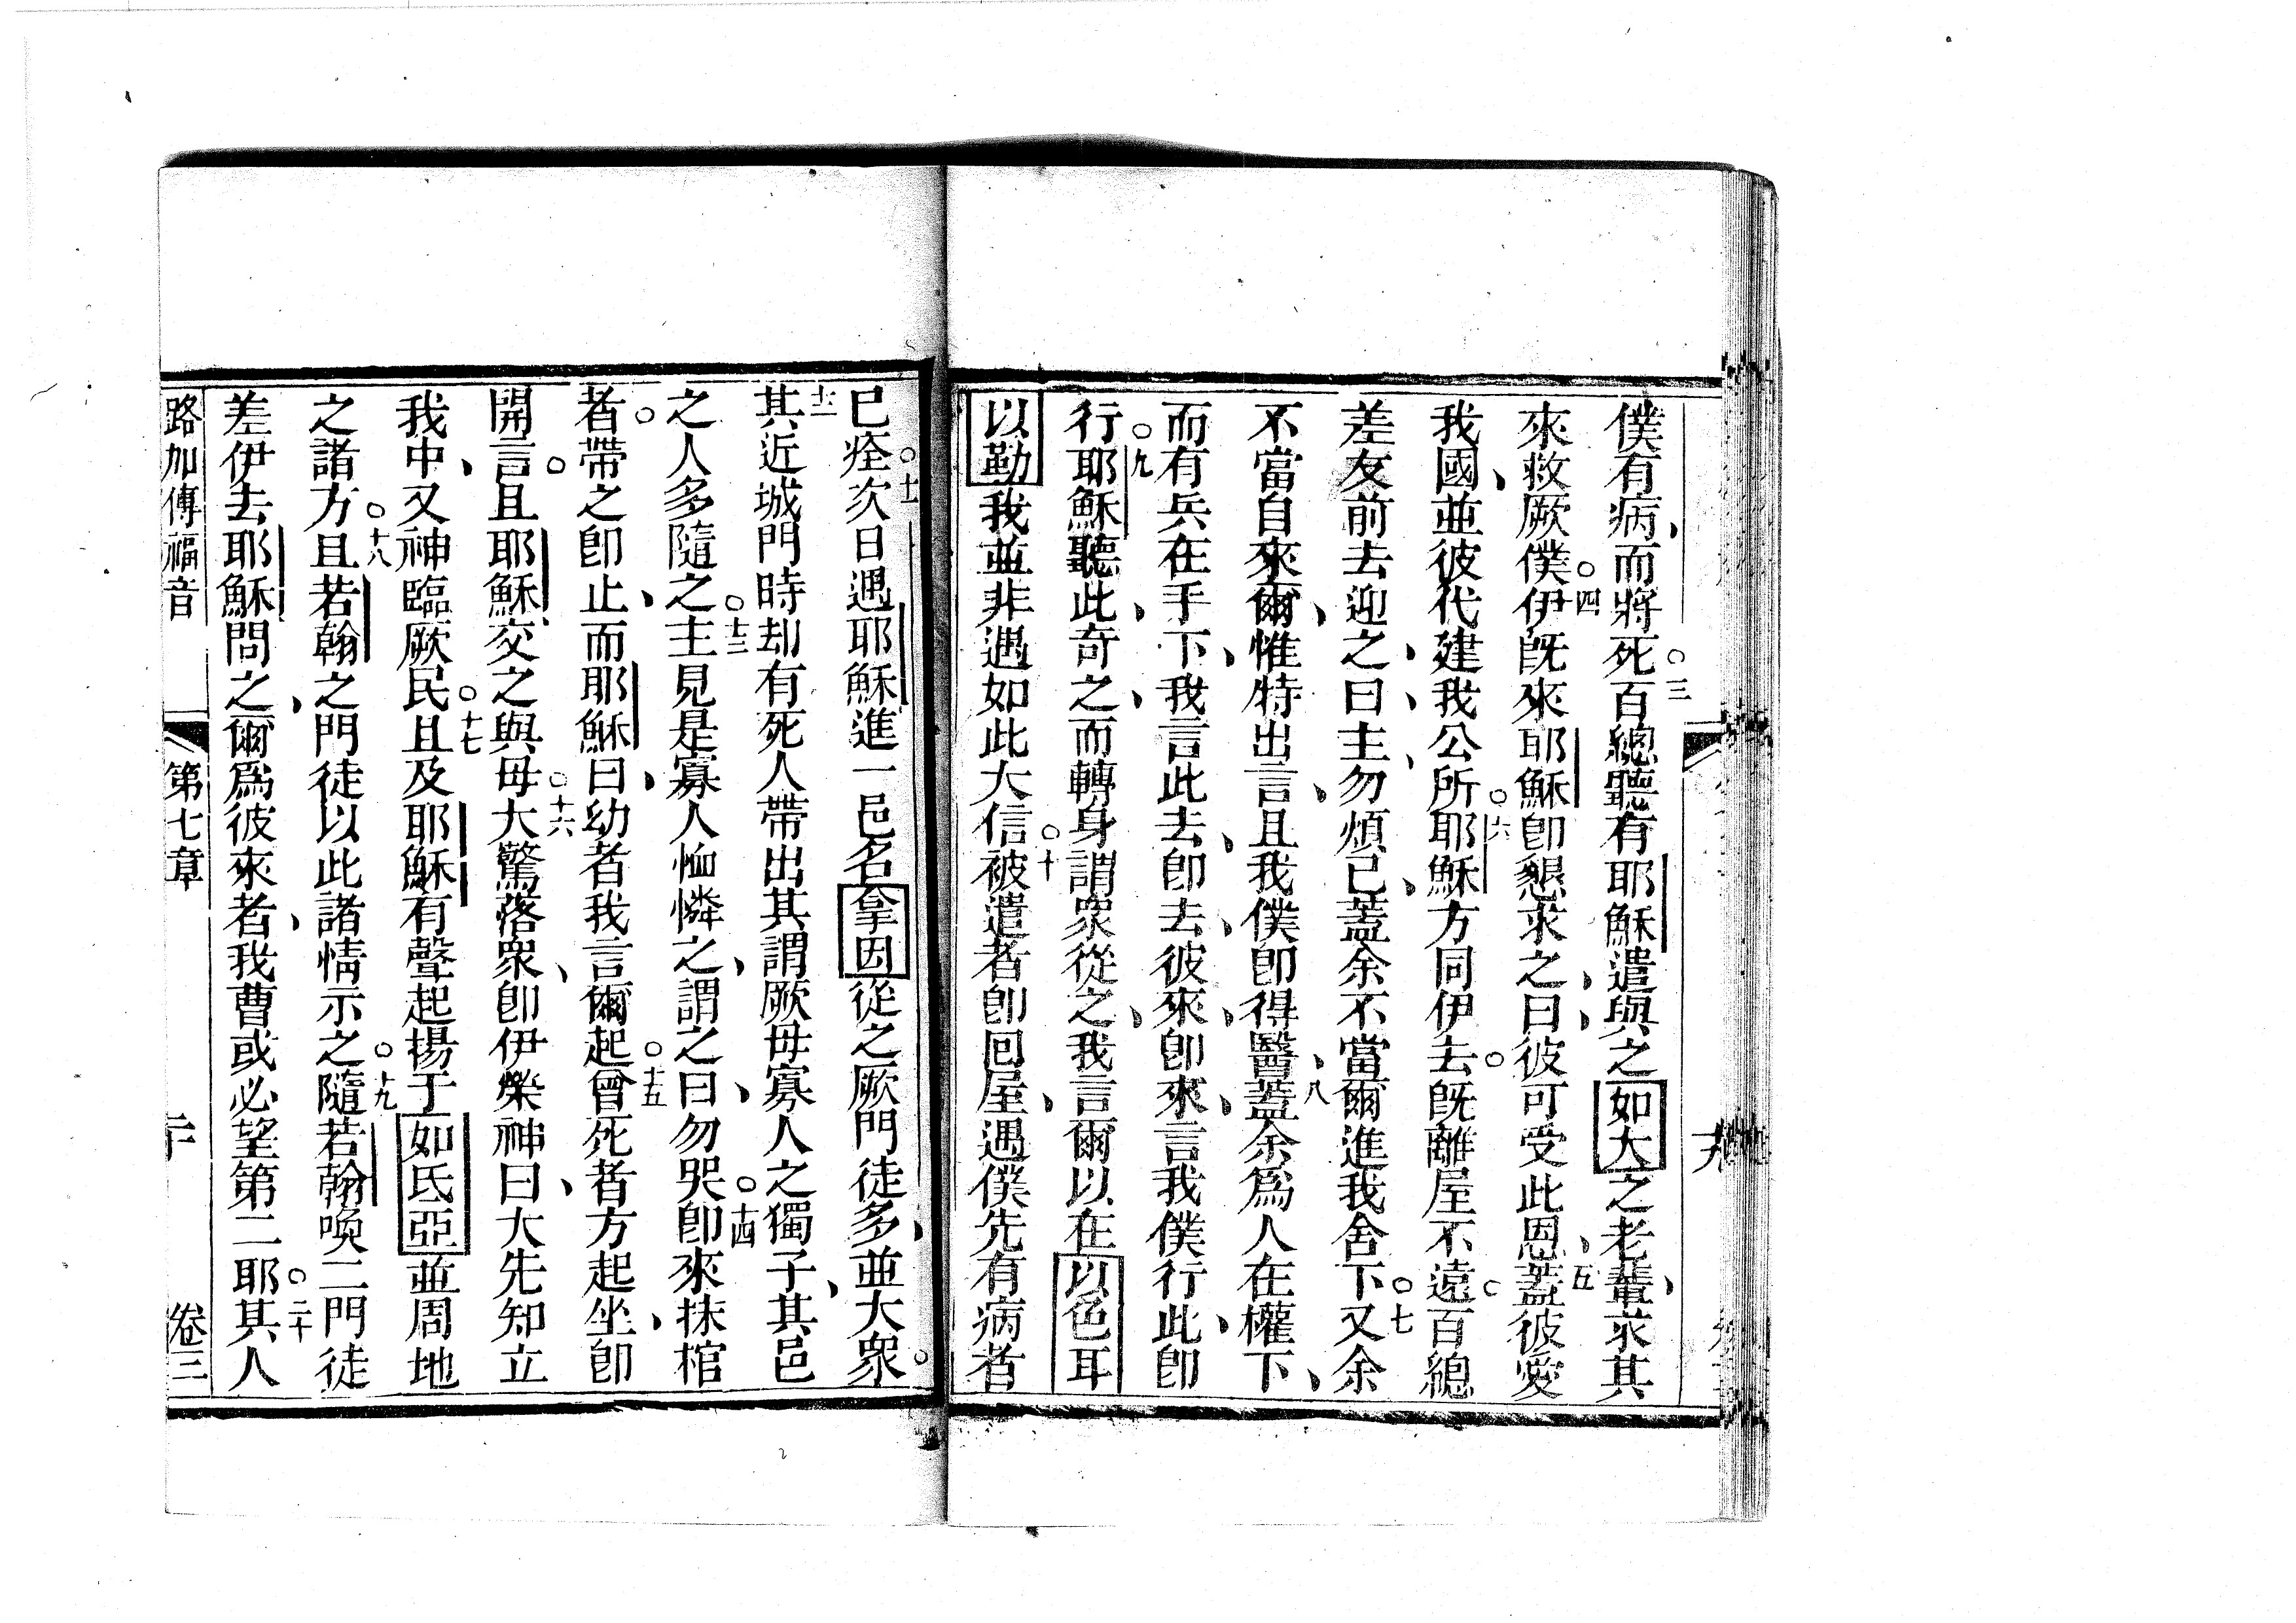 僕有病、而將死○三百總聽有耶穌遣與之如大之老輩、求其
來救厥僕○四伊旣來耶穌卽懇求之、曰、彼可受此恩、五蓋彼愛
我國、並彼代建我公所○六耶穌方同伊去○旣離屋不遠○百總
差友前去迎之、曰、主、勿煩己、蓋余不當爾進我舍下○七又余
不當自來爾、惟特出言、且我僕卽得醫、八蓋余爲人在權下、
而有兵在手下、我言此去、卽去、彼來、卽來、言我僕行此、卽
行○九耶穌聽此、奇之、而轉身謂眾從之、我言爾以在以色耳
以勒我並非遇如此大信○十被遣者卽回屋、遇僕先有病者
已痊○十一次日遇耶穌進一邑名拿因從之厥門徒多、並大眾○
十二其近城門時却有死人帶出其謂厥母寡人之獨子、其邑
之人多隨之○十三主見是寡人恤憐之、謂之曰、勿哭○十四卽來抹棺
者○帶之卽止、而耶穌曰、幼者我言爾起○十五曾死者方起坐、卽
開言○且耶穌交之與母○十六大驚落眾、卽伊榮神曰、大先知立
我中、又神臨厥民○十七且及耶穌有聲起揚于如氏亞並周地
之諸方○十八且若翰之門徒以此諸情示之○十九隨若翰喚二門徒
差伊去耶穌問之、爾爲彼來者、我曹或必望第二耶○二十其人
路加傳福音 第七章 二十 卷三